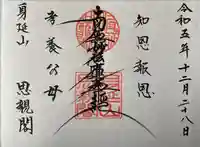 令和五年十二月二十八日
知恩報恩
南無妙法蓮華経
孝養父母
思親閣
身延山